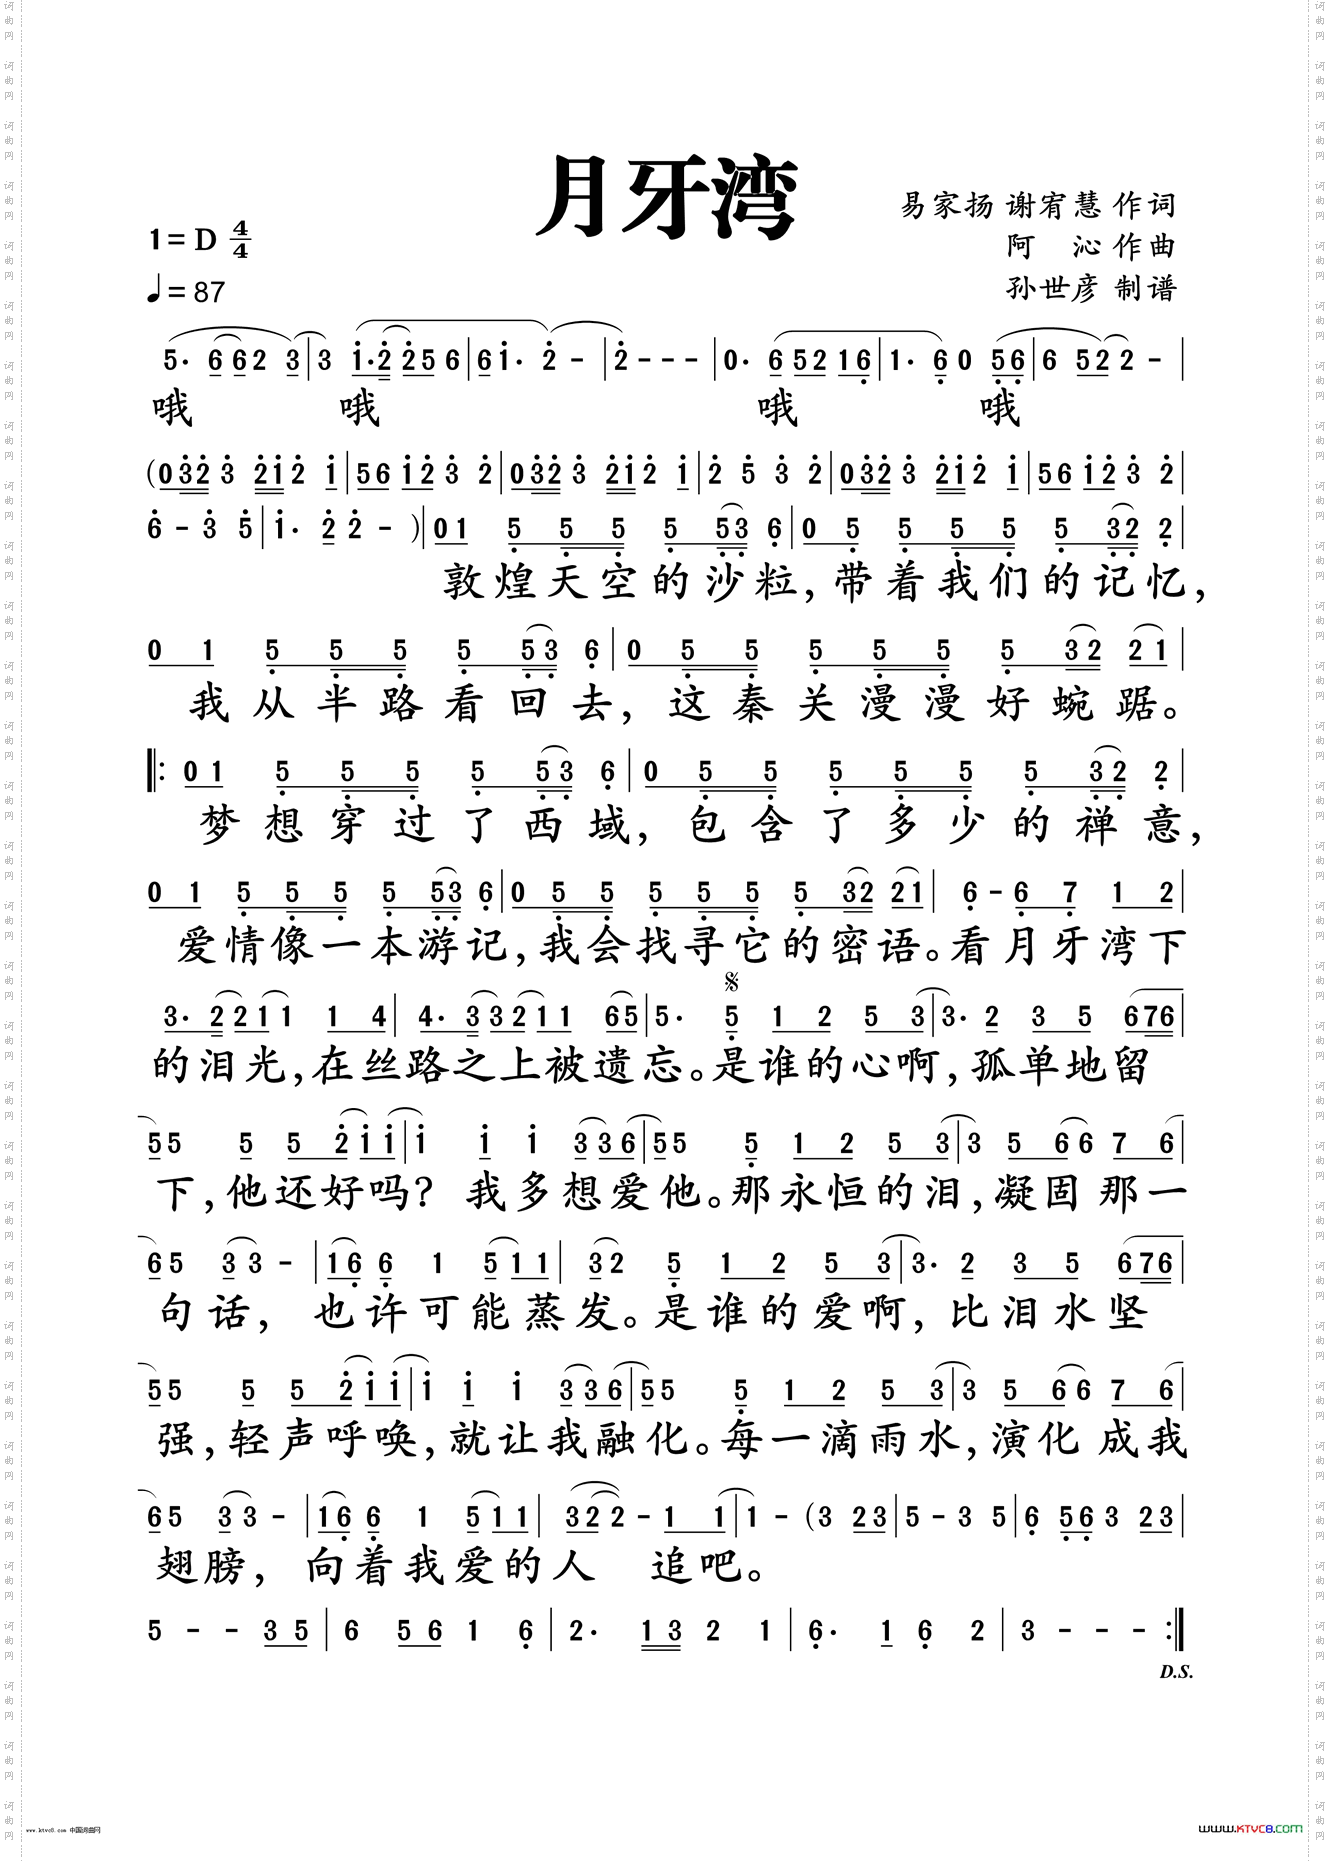 月牙湾
易家扬 谢宥慧 作词
1=D 4/4
阿 沁 作曲
♩=87
孙世彦 制谱
5· 6 6 2 3 | 3 1· 2 2 5 6 | 6 1· 2 - | 2 - - - | 0· 6 5 2 1 6 | 1· 6 0 5 6 | 6 5 2 2 - |
哦 哦 哦 哦
(0 3 2 3 2 1 2 1 | 5 6 1 2 3 2 | 0 3 2 3 2 1 2 1 | 2 5 3 2 | 0 3 2 3 2 1 2 1 | 5 6 1 2 3 2 |
6 - 3 5 | 1· 2 2 - ) | 0 1 5 5 5 5 5 3 6 | 0 5 5 5 5 5 3 2 2 |
敦煌天空的沙粒,带着我们的记忆,
0 1 5 5 5 5 5 3 6 | 0 5 5 5 5 5 5 3 2 2 1 |
我从半路看回去,这秦关漫漫好蜿踞。
0 1 5 5 5 5 5 3 6 | 0 5 5 5 5 5 5 3 2 2 |
梦想穿过了西域,包含了多少的禅意,
0 1 5 5 5 5 5 3 6 | 0 5 5 5 5 5 5 3 2 2 1 | 6 - 6 7 1 2 |
爱情像一本游记,我会找寻它的密语。看月牙湾下
3· 2 2 1 1 1 4 | 4· 3 3 2 1 1 6 5 | 5· 5 1 2 5 3 | 3· 2 3 5 6 7 6 |
的泪光,在丝路之上被遗忘。是谁的心啊,孤单地留
5 5 5 5 2 1 1 | 1 1 1 3 3 6 | 5 5 5 1 2 5 3 | 3 5 6 6 7 6 |
下,他还好吗? 我多想爱他。那永恒的泪,凝固那一
6 5 3 3 - | 1 6 6 1 5 1 1 | 3 2 5 1 2 5 3 | 3· 2 3 5 6 7 6 |
句话, 也许可能蒸发。是谁的爱啊,比泪水坚
5 5 5 5 2 1 1 | 1 1 1 3 3 6 | 5 5 5 1 2 5 3 | 3 5 6 6 7 6 |
强,轻声呼唤,就让我融化。每一滴雨水,演化成我
6 5 3 3 - | 1 6 6 1 5 1 1 | 3 2 2 - 1 1 | 1 - (3 2 3 | 5 - 3 5 | 6 5 6 3 2 3 |
翅膀, 向着我爱的人 追吧。
5 - - 3 5 | 6 5 6 1 6 | 2· 1 3 2 1 | 6· 1 6 2 | 3 - - - :|
D.S.
www.ktvc8.com 中国词曲网
www.KTVC8.com